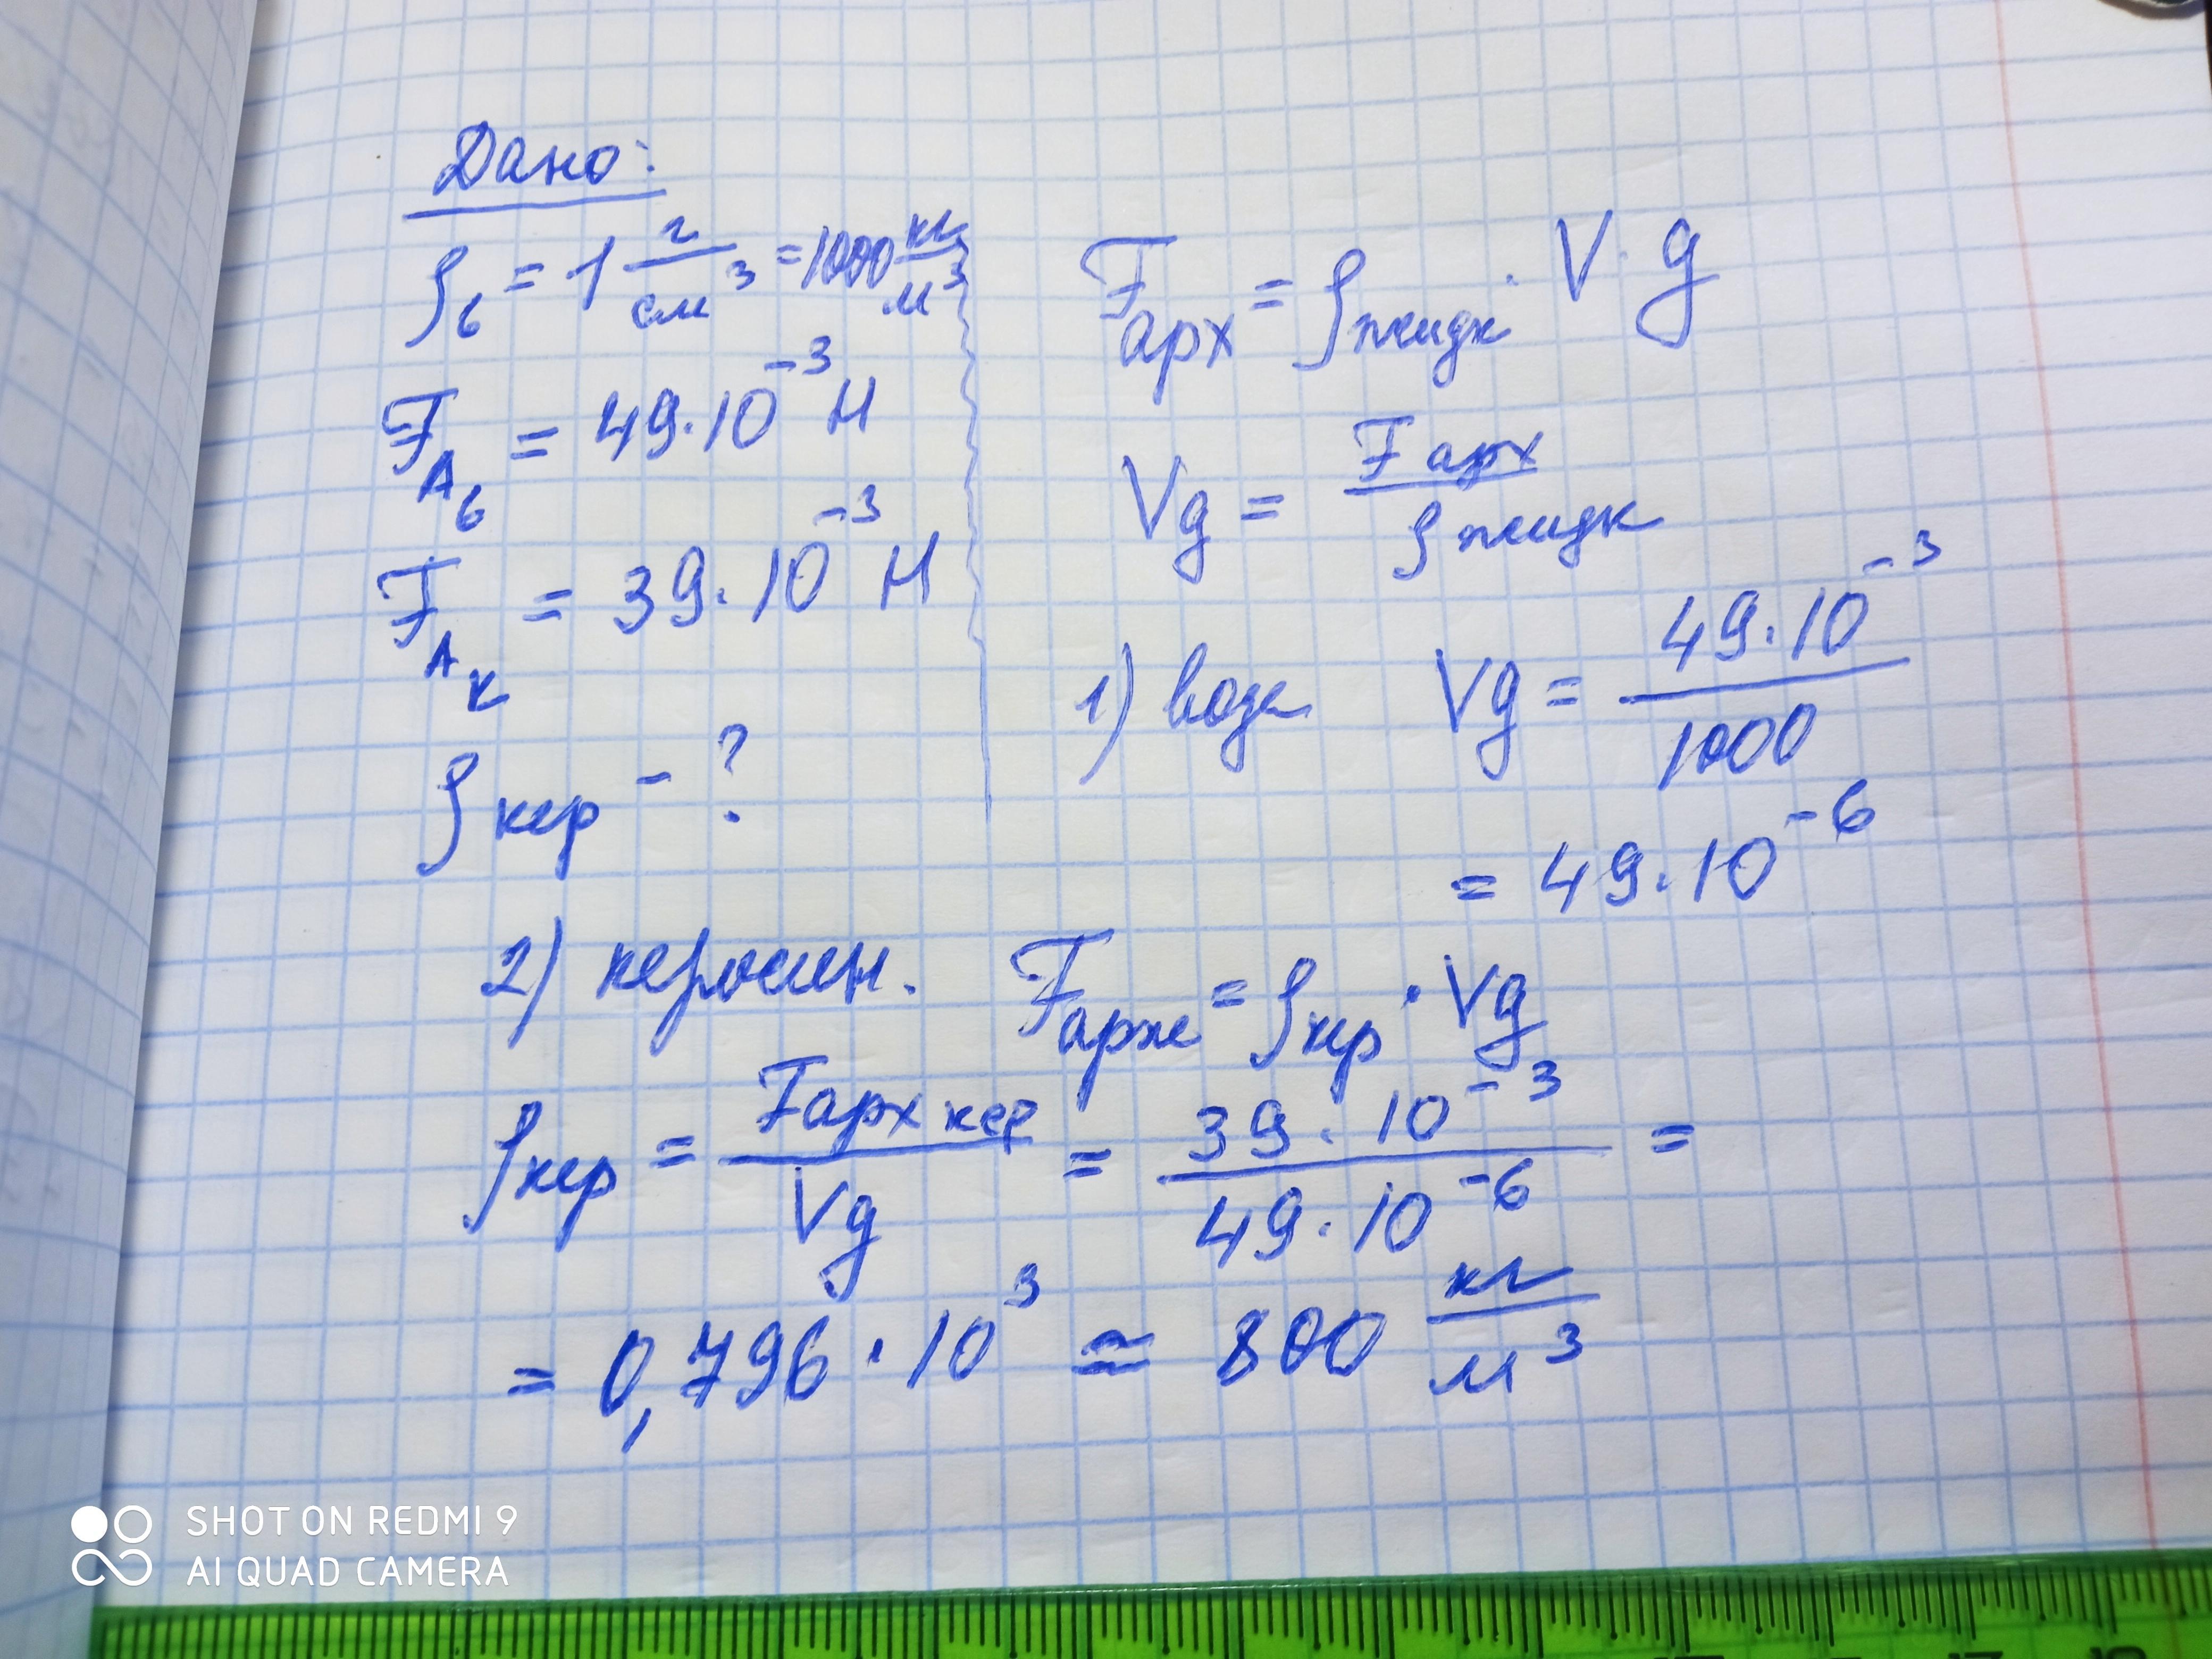 Дано:
ρв = 1 г/см³ = 1000 кг/м³
F_Aв = 49·10⁻³ Н
F_Aк = 39·10⁻³ Н
ρкер - ?
Fарх = ρжидк · V · g
Vg = Fарх / ρжидк
1) вода Vg = 49·10⁻³ / 1000
= 49·10⁻⁶
2) керосин. Fархк = ρкер · Vg
ρкер = Fарх кер / Vg = 39·10⁻³ / 49·10⁻⁶ =
= 0,796 · 10³ ≃ 800 кг/м³
SHOT ON REDMI 9
AI QUAD CAMERA